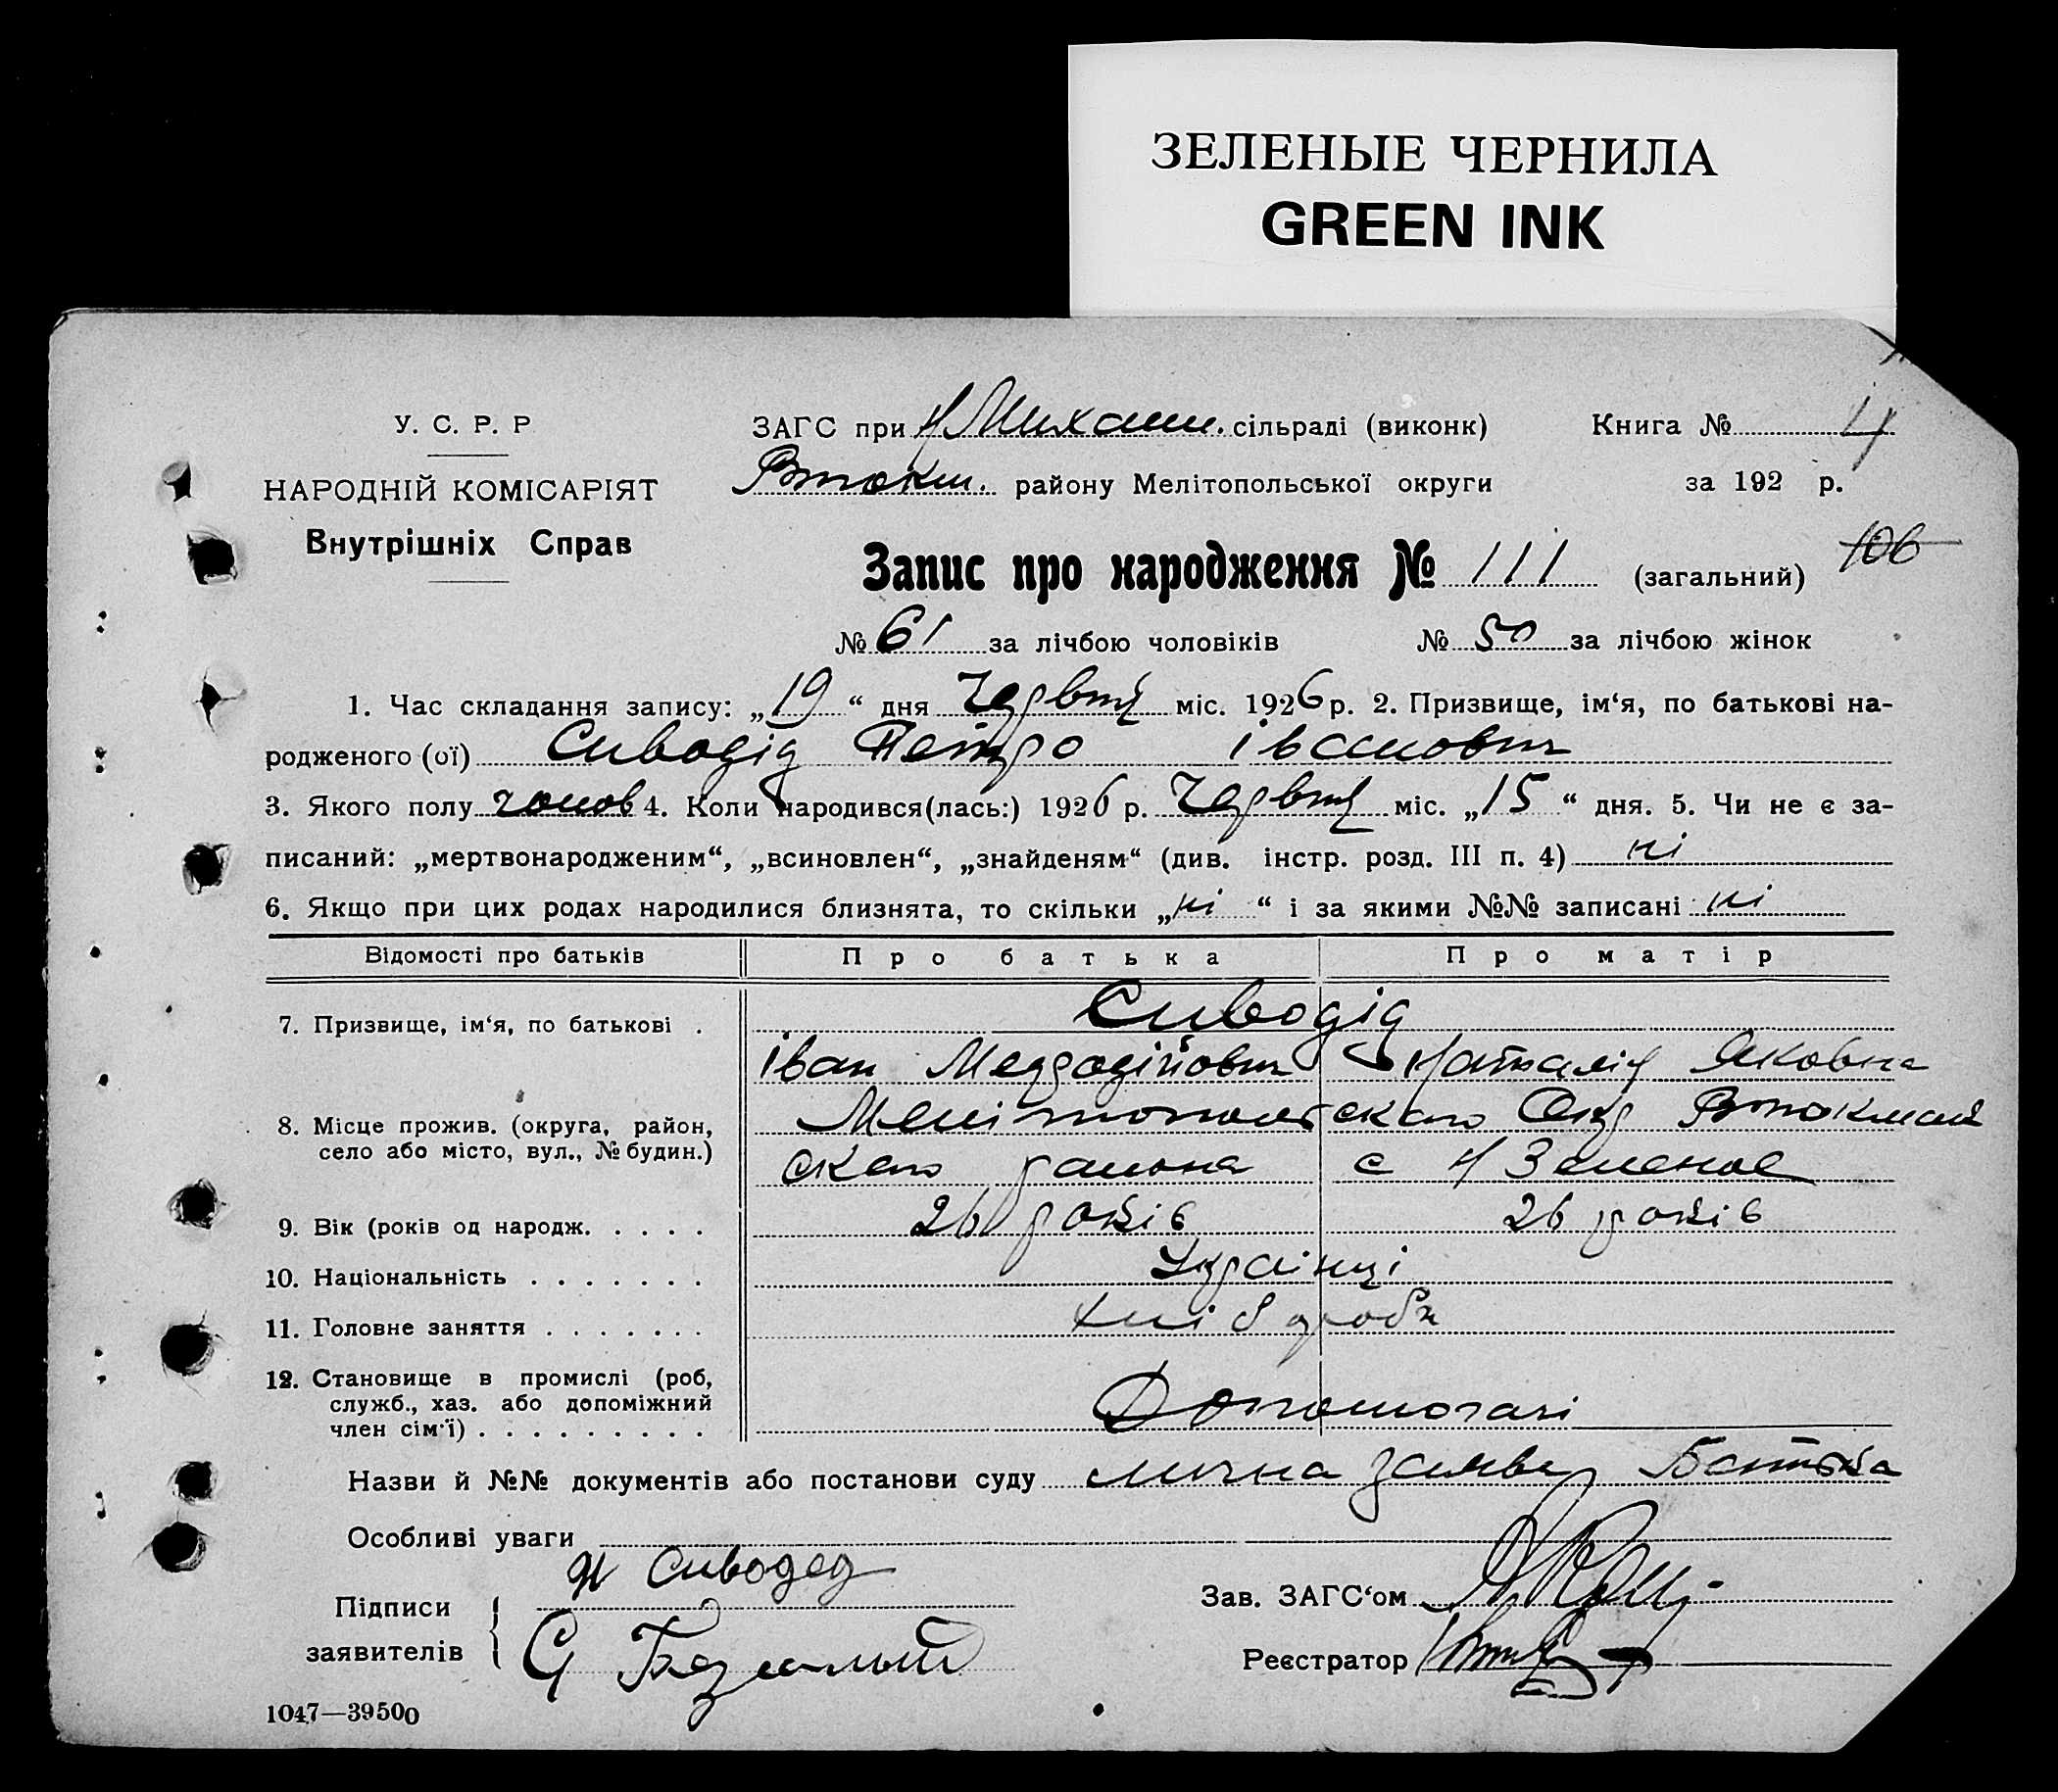 ЗЕЛЕНЫЕ ЧЕРНИЛА
GREEN INK
У. С. Р. Р
НАРОДНІЙ КОМІСАРІЯТ
Внутрішніх Справ
ЗАГС при Н Михайл. сільраді (виконк)
Втокм. району Мелітопольської округи
Книга № 4
за 192 р.
Запис про народження № 111 (загальний) 106
№ 61 за лічбою чоловіків № 50 за лічбою жінок
1. Час складання запису: „19“ дня Червня міс. 1926 р. 2. Призвище, ім‘я, по батькові на-
родженого (ої) Сиводід Петро Іванович
3. Якого полу чолов 4. Коли народився(лась:) 1926 р. Червня міс. „15“ дня. 5. Чи не є за-
писаний: „мертвонародженим“, „всиновлен“, „знайденям“ (див. інстр. розд. III п. 4) ні
6. Якщо при цих родах народилися близнята, то скільки „ні“ і за якими №№ записані ні
Відомості про батьків Про батька Про матір
7. Призвище, ім‘я, по батькові . Сиводід
Іван Меддодійович Наталія Яковна
8. Місце прожив. (округа, район, Мелітопольского Окр Втокмай
село або місто, вул., № будин.) ского района с Н Зеленое
9. Вік (років од народж. . . . . 26 років 26 років
10. Національність . . . . . . . Українці
11. Головне заняття . . . . . . . хлібороби
12. Становище в промислі (роб,
служб., хаз. або допоміжний
член сім‘ї) . . . . . . . . . Допомогачі
Назви й №№ документів або постанови суду лична заява Батька
Особливі уваги
Підписи
заявителів
И Сиводед
С
Зав. ЗАГС‘ом
Реєстратор
1047—39500